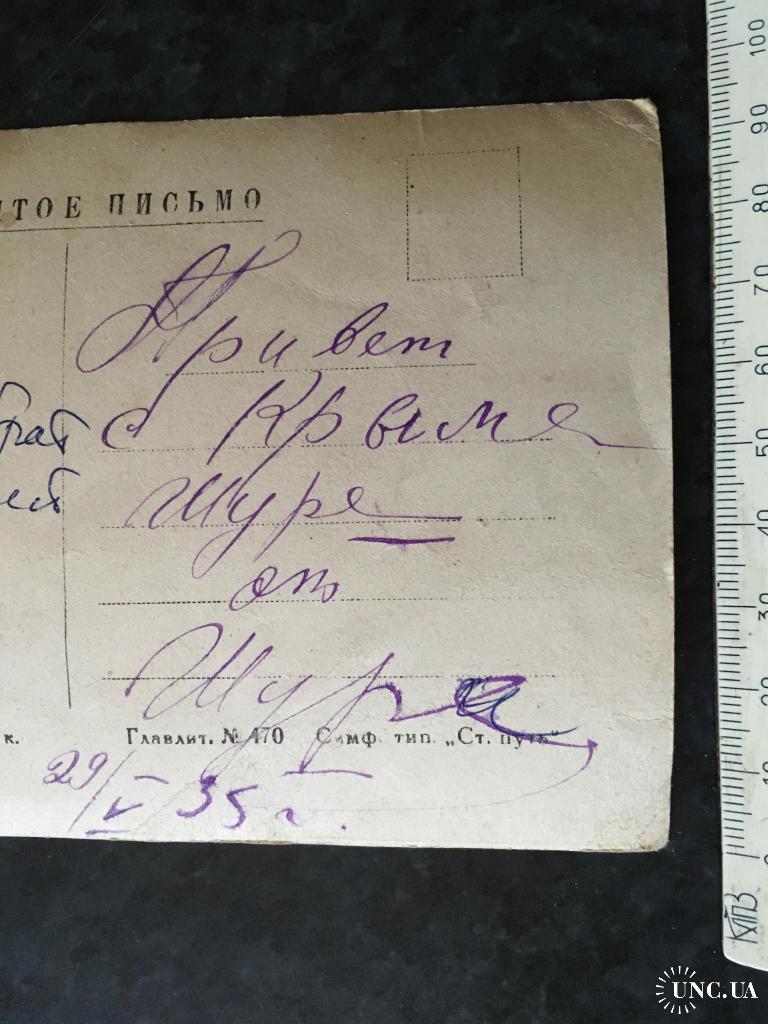 ТОЕ ПИСЬМО
Привет
с Крыма
Шуре
от
Шура
к. Главлит. № 470 Симф. тип. „Ст. путь"
29/V 35 г.
100
90
80
70
60
50
40
30
20
10
0
UNC.UA